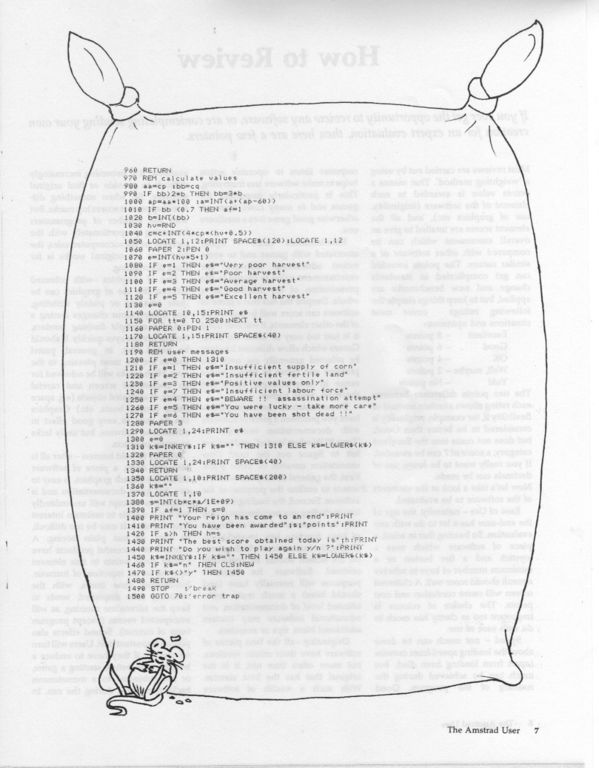 960 RETURN
970 REM calculate values
980 aa=cp :bb=cq
990 IF bb>2*b THEN bb=3*b
1000 ap=aa*100 :a=INT(a+(ap-60))
1010 IF bb <0.7 THEN af=1
1020 b=INT(bb)
1030 hv=RND
1040 c=c+INT(4*cp*(hv+0.5))
1050 LOCATE 1,12:PRINT SPACE$(120):LOCATE 1,12
1060 PAPER 2:PEN 0
1070 e=INT(hv*5+1)
1080 IF e=1 THEN e$="Very poor harvest"
1090 IF e=2 THEN e$="Poor harvest"
1100 IF e=3 THEN e$="Average harvest"
1110 IF e=4 THEN e$="Good harvest"
1120 IF e=5 THEN e$="Excellent harvest"
1130 e=0
1140 LOCATE 10,15:PRINT e$
1150 FOR tt=0 TO 2500:NEXT tt
1160 PAPER 0:PEN 1
1170 LOCATE 1,15:PRINT SPACE$(40)
1180 RETURN
1190 REM user messages
1200 IF e=0 THEN 1310
1210 IF e=1 THEN e$="Insufficient supply of corn"
1220 IF e=2 THEN e$="Insufficient fertile land"
1230 IF e=3 THEN e$="Positive values only"
1240 IF e=7 THEN e$="Insufficient labour force"
1250 IF e=4 THEN e$="BEWARE !! assassination attempt"
1260 IF e=5 THEN e$="You were lucky - take more care"
1270 IF e=6 THEN e$="You have been shot dead !!"
1280 PAPER 3
1290 LOCATE 1,24:PRINT e$
1300 e=0
1310 k$=INKEY$:IF k$="" THEN 1310 ELSE k$=LOWER$(k$)
1320 PAPER 0
1330 LOCATE 1,24:PRINT SPACE$(40)
1340 RETURN
1350 LOCATE 1,10:PRINT SPACE$(200)
1360 k$=""
1370 LOCATE 1,10
1380 s=INT(b*c*a/1E+09)
1390 IF af=1 THEN s=0
1400 PRINT "Your reign has come to an end":PRINT
1410 PRINT "You have been awarded";s;"points":PRINT
1420 IF s>h THEN h=s
1430 PRINT "The best score obtained today is";h:PRINT
1440 PRINT "Do you wish to play again y/n ?":PRINT
1450 k$=INKEY$:IF k$="" THEN 1450 ELSE k$=LOWER$(k$)
1460 IF k$="n" THEN CLS:NEW
1470 IF k$<>"y" THEN 1450
1480 RETURN
1490 STOP :'break
1500 GOTO 70:'error trap
The Amstrad User 7